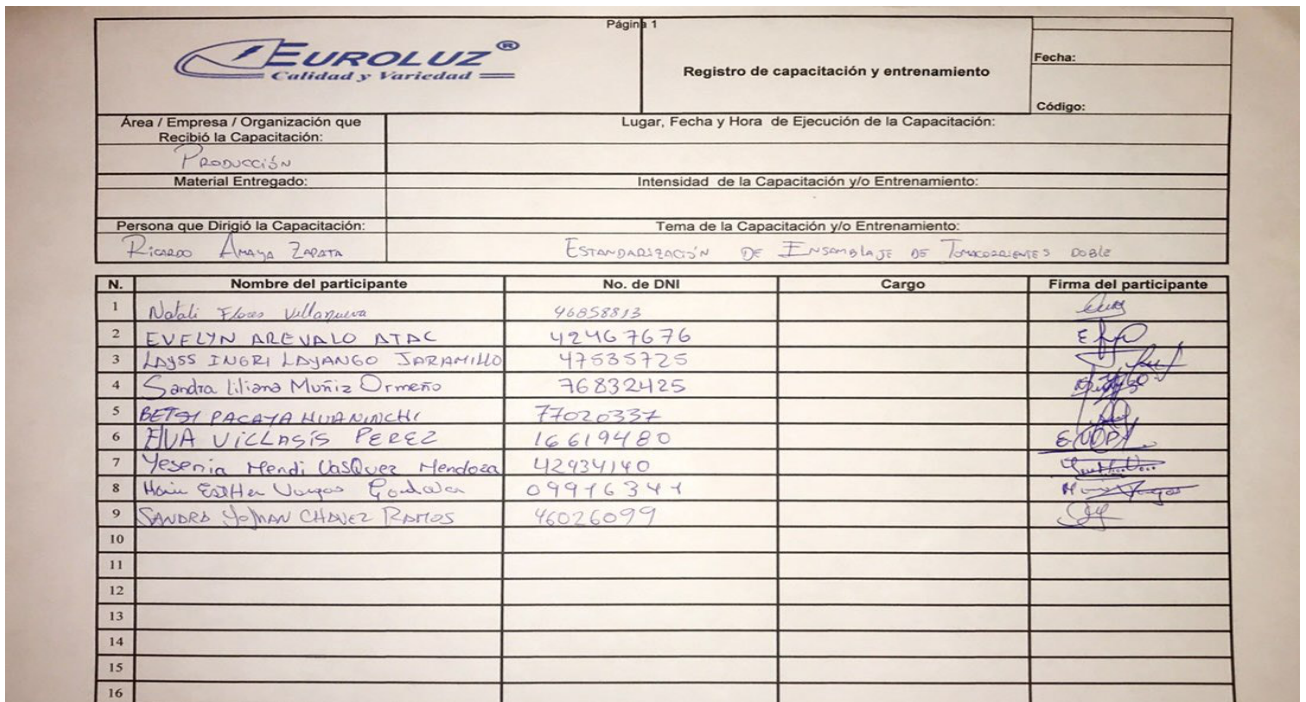 Página 1
EUROLUZ®
Calidad y Variedad
Registro de capacitación y entrenamiento
Fecha:
Código:
Área / Empresa / Organización que
Recibió la Capacitación:
Lugar, Fecha y Hora de Ejecución de la Capacitación:
PRODUCCIÓN
Material Entregado:
Intensidad de la Capacitación y/o Entrenamiento:
Persona que Dirigió la Capacitación:
Tema de la Capacitación y/o Entrenamiento:
RICARDO AMAYA ZAPATA
ESTANDARIZACIÓN DE ENSAMBLAJE DE TOMACORRIENTES DOBLE
N. Nombre del participante No. de DNI Cargo Firma del participante
1 Natali Flores Villanueva 46858813
2 EVELYN AREVALO ATAC 42467676
3 LAYSS INGRI LAYANGO JARAMILLO 47535725
4 Sandra Liliana Muñiz Ormeño 76832425
5 BETSI PACAYA HUANINCHI 77020337
6 ELVA VILLASÍS PEREZ 16619480
7 Yesenia Mendi VasQuez Mendoza 42934140
8 EstHer Vargas 09976341
9 SANDRA CHAVEZ RAMOS 46026099
10
11
12
13
14
15
16